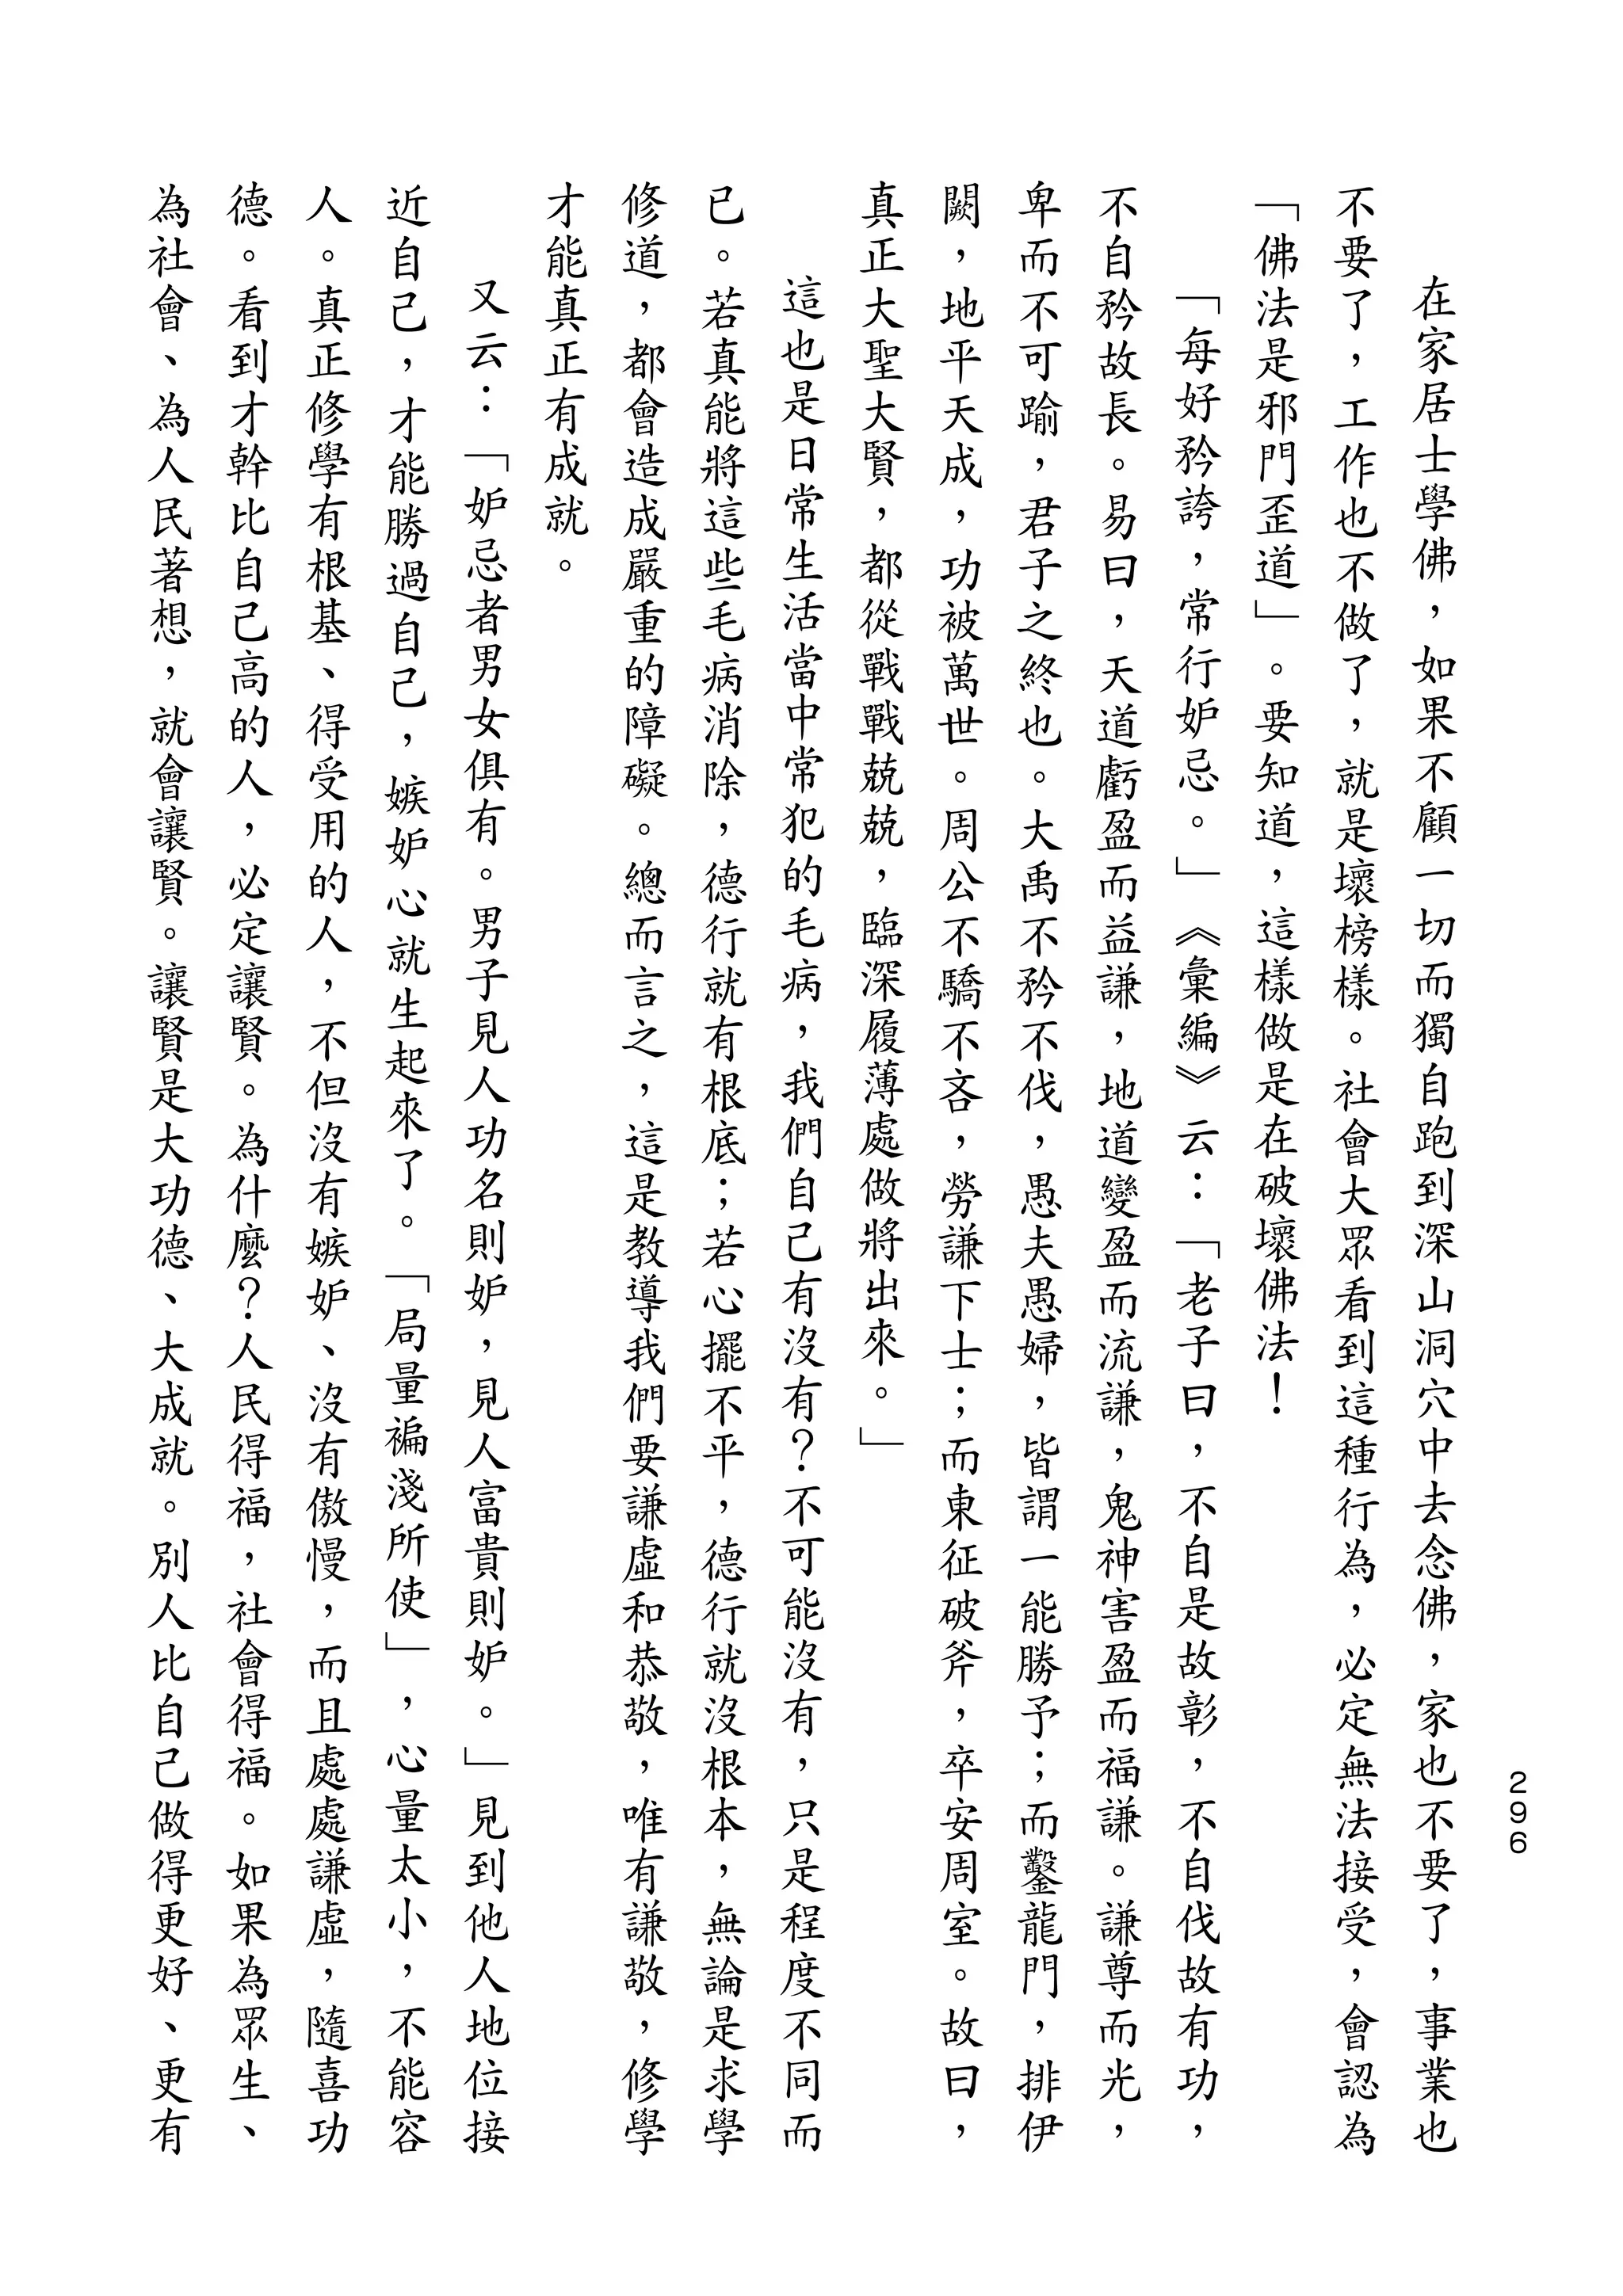 296
在家居士學佛，如果不顧一切而獨自跑到深山洞穴中去念佛，家也不要了，事業也
不要了，工作也不做了，就是壞榜樣。社會大眾看到這種行為，必定無法接受，會認為
「佛法是邪門歪道」。要知道，這樣做是在破壞佛法！
「每好矜誇，常行妒忌。」《彙編》云：「老子曰，不自是故彰，不自伐故有功，
不自矜故長。易曰，天道虧盈而益謙，地道變盈而流謙，鬼神害盈而福謙。謙尊而光，
卑而不可踰，君子之終也。大禹不矜不伐，愚夫愚婦，皆謂一能勝予；而鑿龍門，排伊
闕，地平天成，功被萬世。周公不驕不吝，勞謙下士；而東征破斧，卒安周室。故曰，
真正大聖大賢，都從戰戰兢兢，臨深履薄處做將出來。」
這也是日常生活當中常犯的毛病，我們自己有沒有？不可能沒有，只是程度不同而
已。若真能將這些毛病消除，德行就有根底；若心擺不平，德行就沒根本，無論是求學
修道，都會造成嚴重的障礙。總而言之，這是教導我們要謙虛和恭敬，唯有謙敬，修學
才能真正有成就。
又云：「妒忌者男女俱有。男子見人功名則妒，見人富貴則妒。」見到他人地位接
近自己，才能勝過自己，嫉妒心就生起來了。「局量褊淺所使」，心量太小，不能容
人。真正修學有根基、得受用的人，不但沒有嫉妒、沒有傲慢，而且處處謙虛，隨喜功
德。看到才幹比自己高的人，必定讓賢。為什麼？人民得福，社會得福。如果為眾生、
為社會、為人民著想，就會讓賢。讓賢是大功德、大成就。別人比自己做得更好、更有